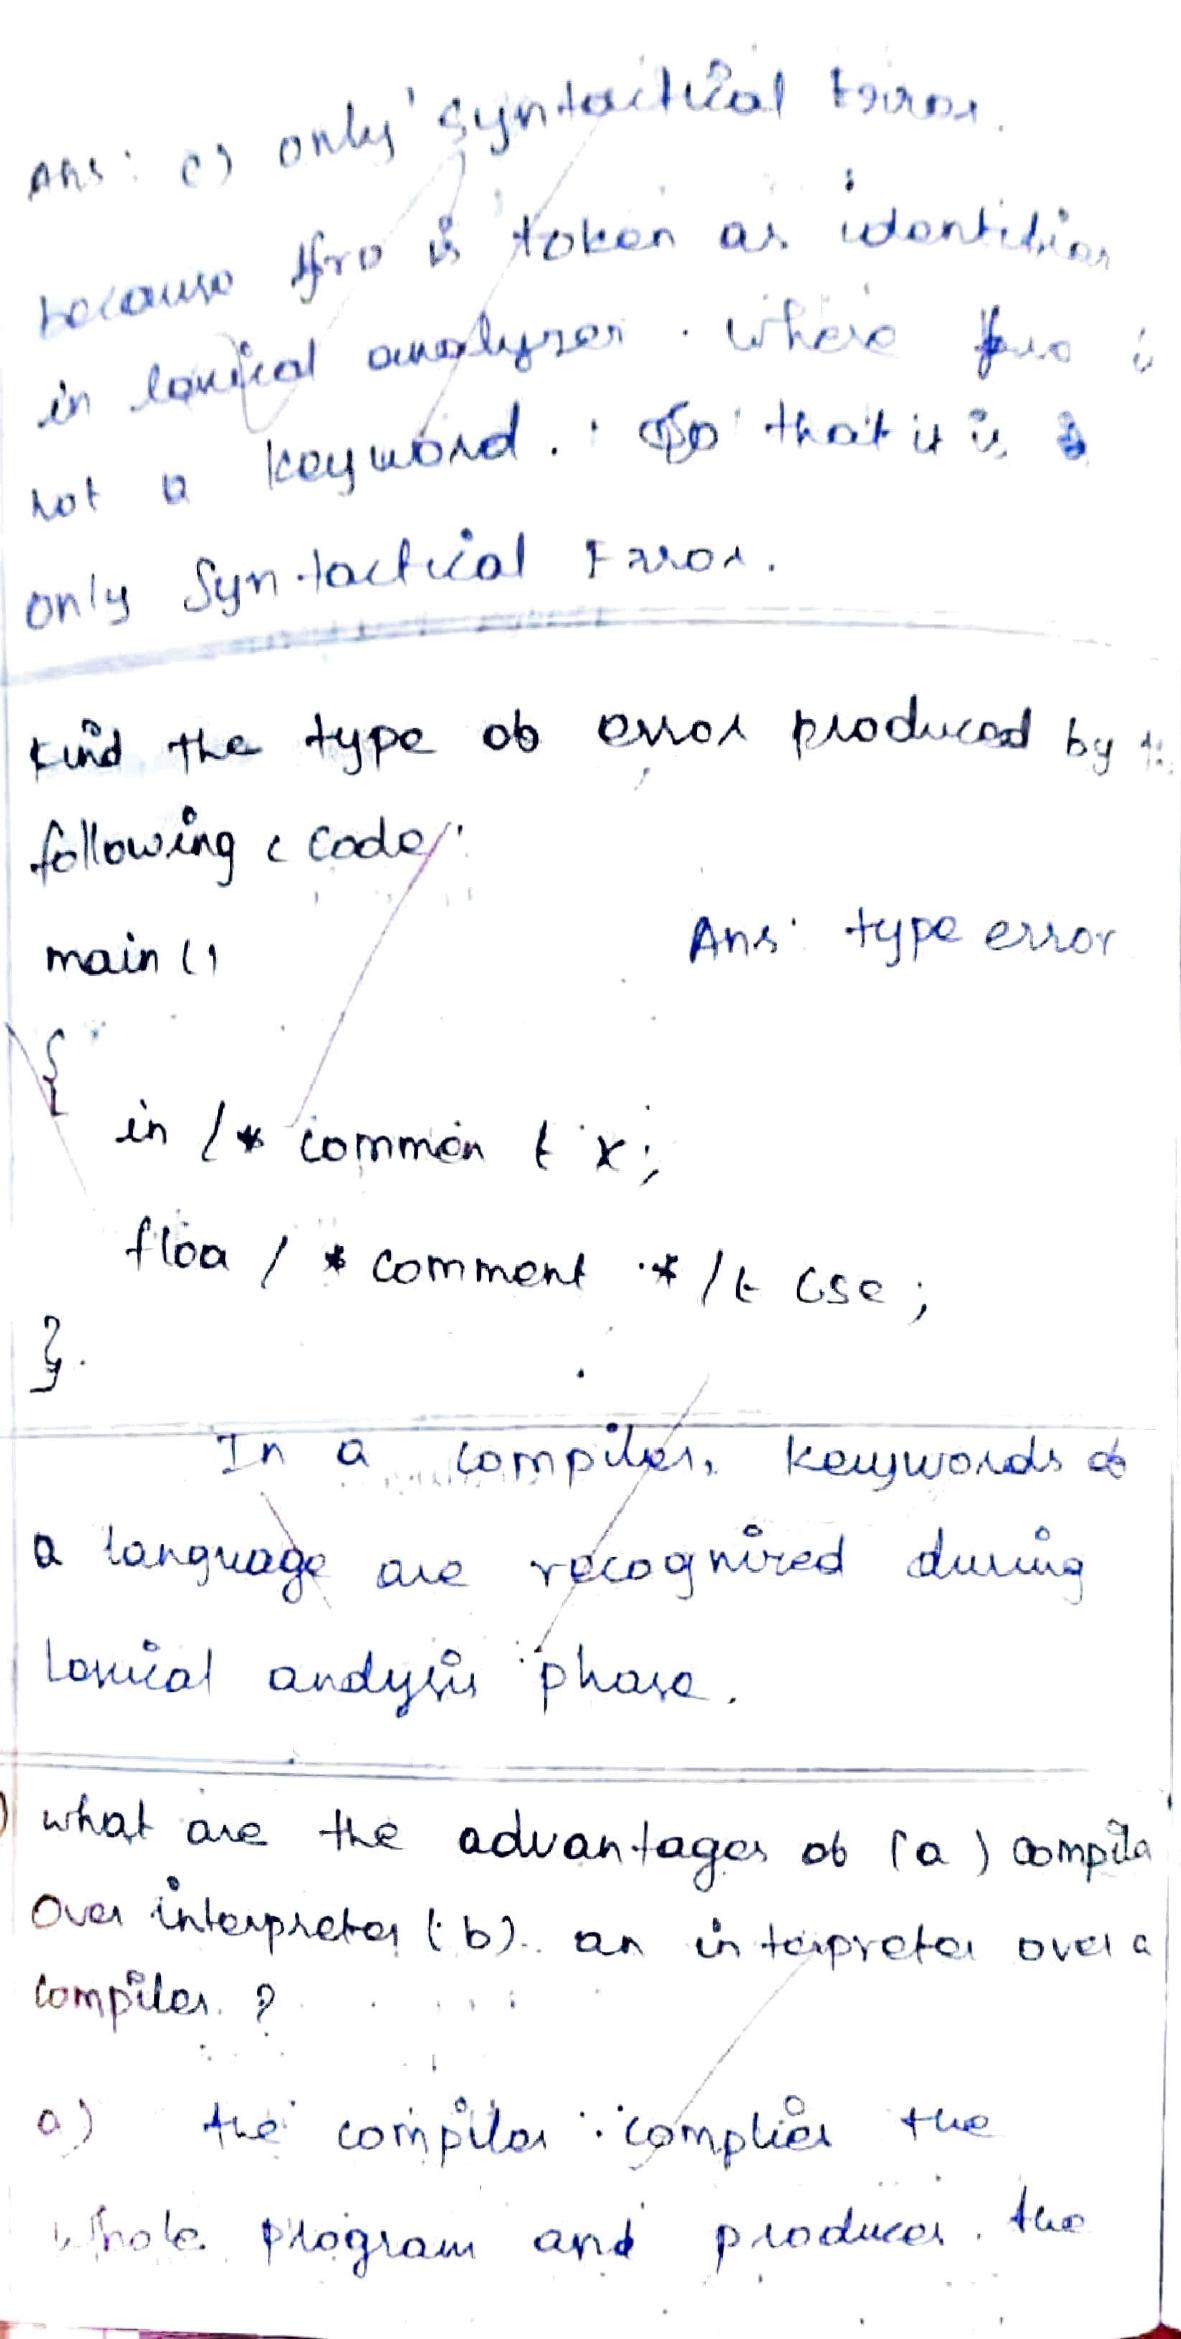 Ans: c) only Syntactical Error.
because fro is token as identifier
in lexical analyzer. where fro is
not a keyword. So that it is
only Syntactical Error.
Find the type of error produced by
following c code:
main ()
Ans: type error
{
in /* common t x;
floa /* comment */t cse;
}.
In a compiler, keywords of
a language are recognized during
Lexical analysis phase.
) what are the advantages of (a) compile
over interpreter (b). an interpreter over a
compiler. ?
a) the compiler complies the
whole program and produces the